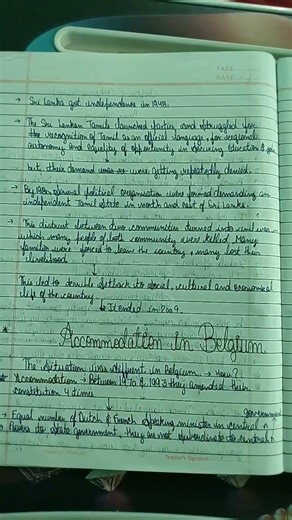 PAGE
DATE
→ Sri Lanka got independence in 1948.
→ The Sri Lankan Tamils launched parties and struggled for
the recognition of Tamil as an official language, for regional
autonomy and equality of opportunity in securing education &
but their demand was were getting repeatedly denied.
→ By 1980s several political organisation were formed demanding an
independent Tamil state in north and east of Sri Lanka.
→ This distrust between two communities turned into civil war
which many people of both community were killed. Many
families were forced to leave the country, many lost their
livelihood
This led to terrible setback to social, cultural and economical
life of the country.
↳ It ended in 2009.
Accommodation in Belgium
The situation was different in Belgium → How?
* Accommodation → Between 1970 & 1993 they amended their
constitution 4 times
government
→ Equal number of Dutch & French speaking minister in central ^
→ Powers to state government, they are not subordinate to central ^
Teacher's Signature